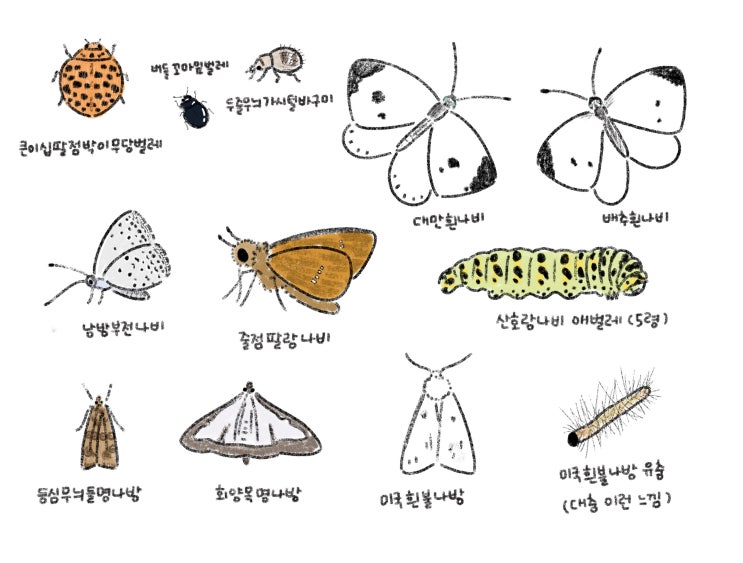 버들꼬마잎벌레
두줄무늬가시털바구미
큰이십팔점박이무당벌레
대만흰나비
배추흰나비
남방부전나비
줄점팔랑나비
산호랑나비 애벌레 (5령)
등심무늬들명나방
회양목명나방
미국흰불나방
미국흰불나방 유충
(대충 이런 느낌)